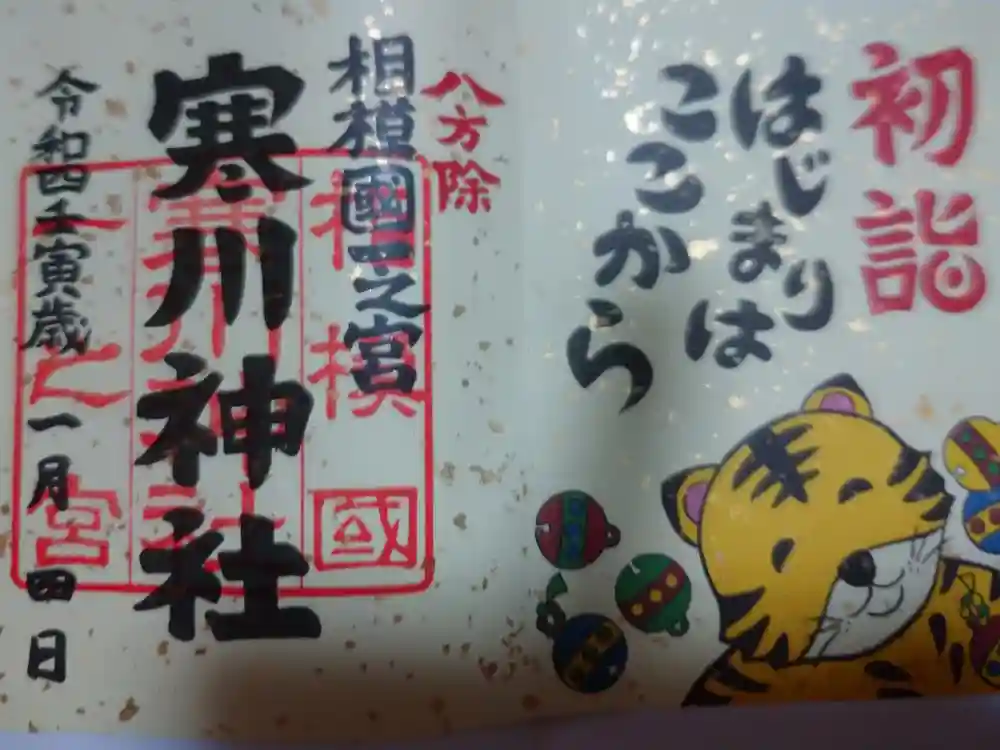 初詣
はじまりは
ここから
八方除
相模國一之宮
寒川神社
令和四壬寅歳 一月 四日
相模國
寒川神社
一之宮